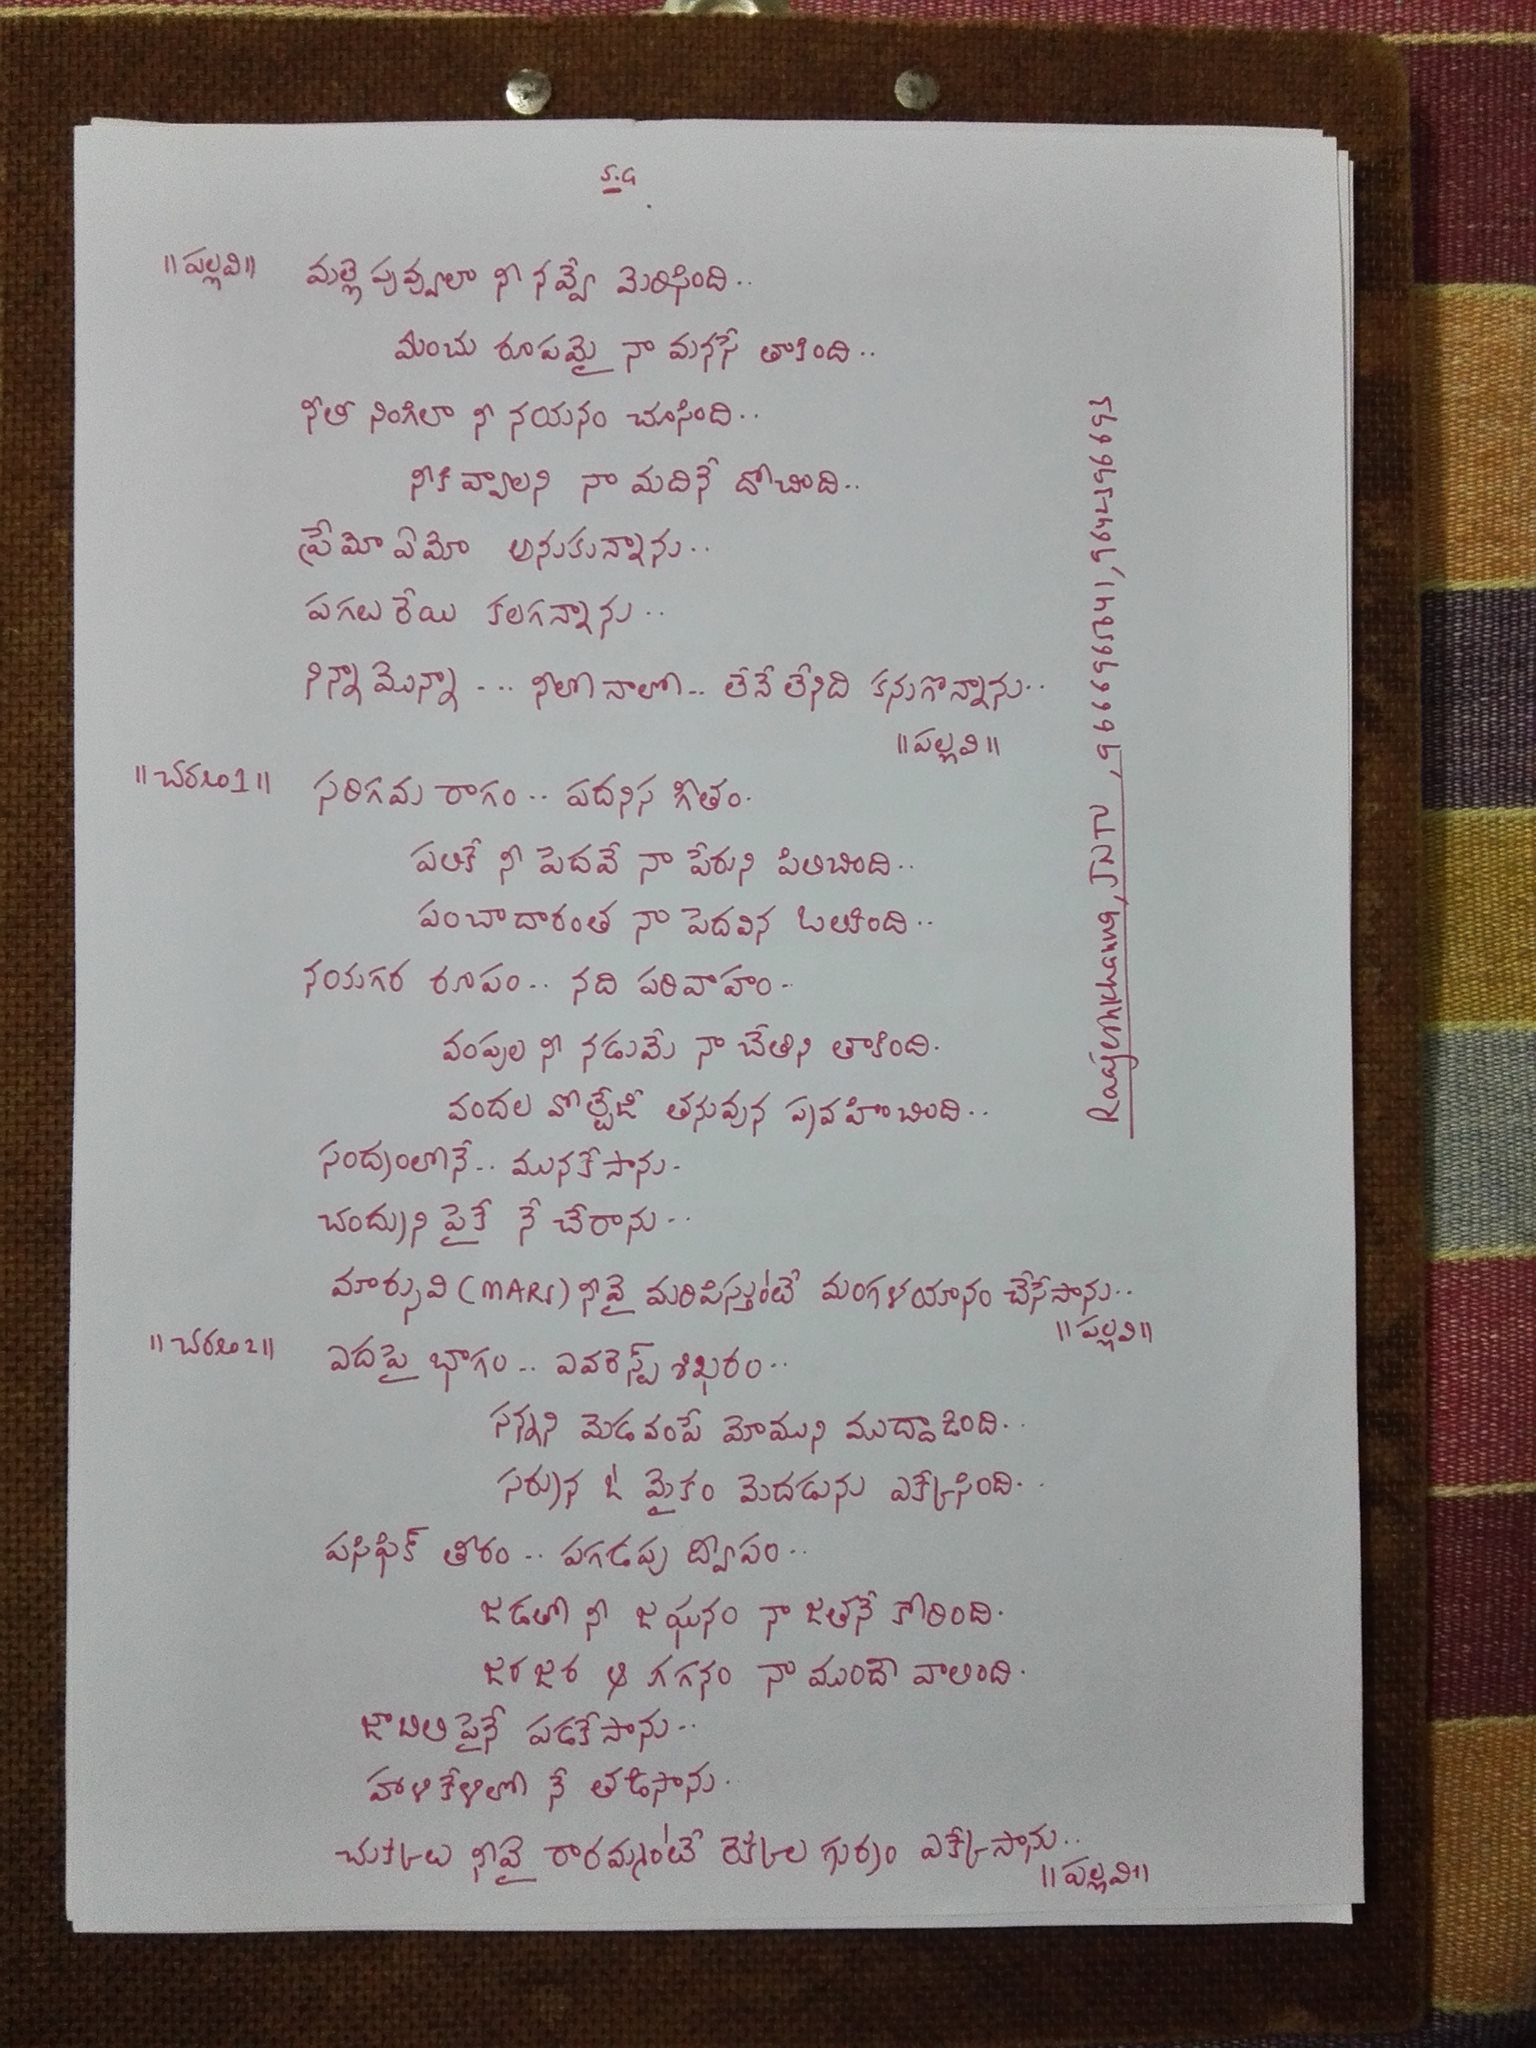 S.G
॥పల్లవి॥ మల్లె పువ్వులా నీ నవ్వే మెరిసింది..
మంచు రూపమై నా మనసే తాకింది..
నీలి నింగిలా నీ నయనం చూసింది..
నీకివ్వాలని నా మదినే దోచింది..
ప్రేమో ఏమో అనుకున్నాను..
పగలు రేయి కలగన్నాను..
నిన్నా మొన్నా .... నీలో నాలో.. లేనే లేనిది కనుగొన్నాను..
॥పల్లవి॥
॥చరణం1॥ సరిగమ రాగం.. పదనిస గీతం.
పలికే నీ పెదవే నా పేరుని పిలిచింది..
పంచాదారంత నా పెదవిన ఒలికింది..
నయగర రూపం.. నది పరివాహం..
వంపుల నీ నడుమే నా చేతిని తాకింది.
వందల వోల్టేజీ తనువున ప్రవహించింది..
సంద్రంలోనే.. మునకేసాను.
చంద్రుని పైకే నే చేరాను..
మార్సువి (MARS) నీవై మరిపిస్తుంటే మంగళయానం చేసేసాను..
॥పల్లవి॥
॥చరణం2॥ ఎదపై భాగం.. ఎవరెస్ట్ శిఖరం..
సన్నని మెడవంపే మోముని ముద్దాడింది..
సర్రున ఓ మైకం మెదడును ఎక్కేసింది..
పసిఫిక్ తీరం.. పగడపు ద్వీపం..
జడతో నీ జఘనం నా జతనే కోరింది.
జర జర ఆ గగనం నా ముందే వాలింది.
జాబిలి పైనే పడకేసాను..
హోళికేళిలో నే తడిసాను.
చుక్కలు నీవై రారమ్మంటే రెక్కల గుర్రం ఎక్కేసాను..
॥పల్లవి॥
Raajeshkhanna, JNTU, 9666965641, 9642396695